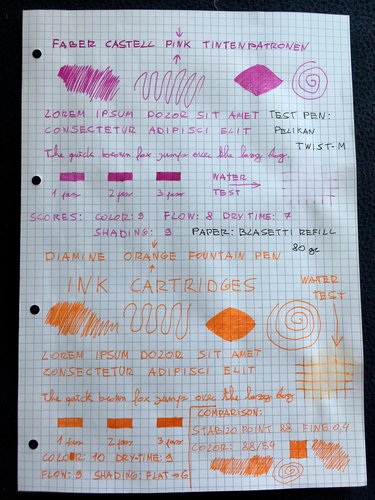 FABER CASTELL PINK TINTENPATRONEN
LOREM IPSUM DOLOR SIT AMET
CONSECTETUR ADIPISCI ELIT
TEST PEN:
PELIKAN
TWIST-M
The quick brown fox jumps over the lazy dog.
1 pass 2 pass 3 pass
WATER
TEST
SCORES: COLOR: 9 FLOW: 8 DRY TIME: 7
SHADING: 9 PAPER: BLASETTI REFILL
80 gr
DIAMINE ORANGE FOUNTAIN PEN
INK CARTRIDGES
WATER
TEST
LOREM IPSUM DOLOR SIT AMET
CONSECTETUR ADIPISCI ELIT
The quick brown fox jumps over the lazy dog
1 pass 2 pass 3 pass
COLOUR: 10 DRY-TIME: 9
FLOW: 9 SHADING: FLAT→6
COMPARISON:
STABILO POINT 88 FINE 0,4
COLOR: 88/54